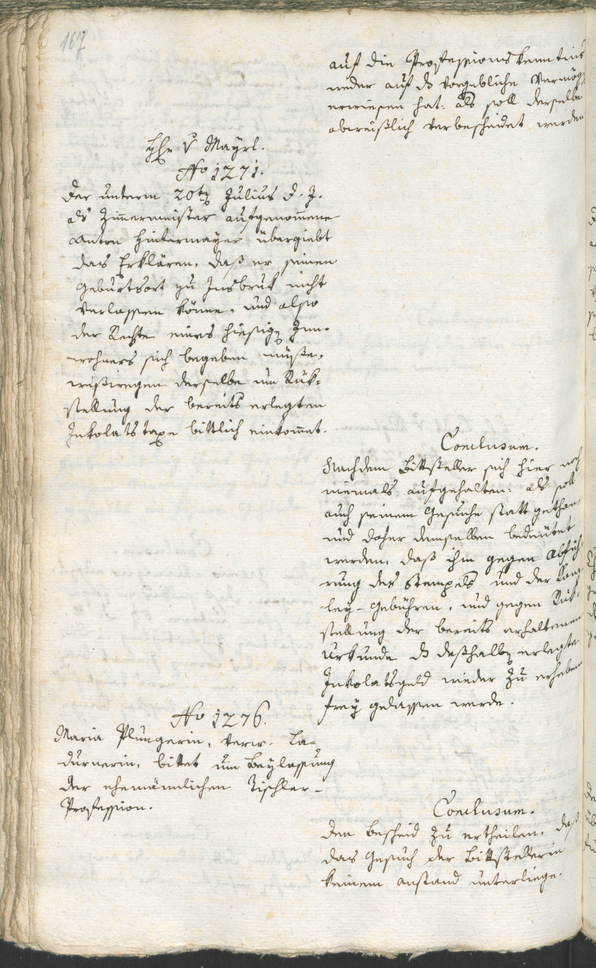 167
auf die Professionskenntniß
weder auf ds vorgebliche Vermög
erwiesen hat: als soll derselbe
abweißlich verbeschiedet werden
Hr. v Mayrl.
No 1271.
Der unterm 20t Julius d. J.
als Zimmermeister aufgenommene
Anton Hintermayer übergiebt
das Erklären, daß er seinen
Geburtsort zu Insbruk nicht
verlassen könne, und also
der Rechte eines hiesig Inn-
wohners sich begeben müße,
weßwegen derselbe um Rük-
stellung der bereits erlegten
Inkolatstaxe bittlich einkommet.
Conclusum.
Nachdem Bittsteller sich hier noch
niemals aufgehalten: als soll
auch seinem Gesuche statt gethan
und daher demselben bedeütet
werden, daß ihm gegen Abfüh-
rung des Stempels und der Kanz-
ley-Gebühren, und gegen Rük-
stellung der bereits erhaltenen
Urkunde ds deßhalb erlegte
Inkolatsgeld wieder zu erheben
frey gelassen werde.
No 1276.
Maria Plungerin, verw. La-
durnerin, bittet um Beylassung
der ehemännlichen Tischler-
Profession.
Conclusum.
Den Bescheid zu ertheilen, daß
das Gesuch der Bittstellerin
keinem Anstand unterliege.